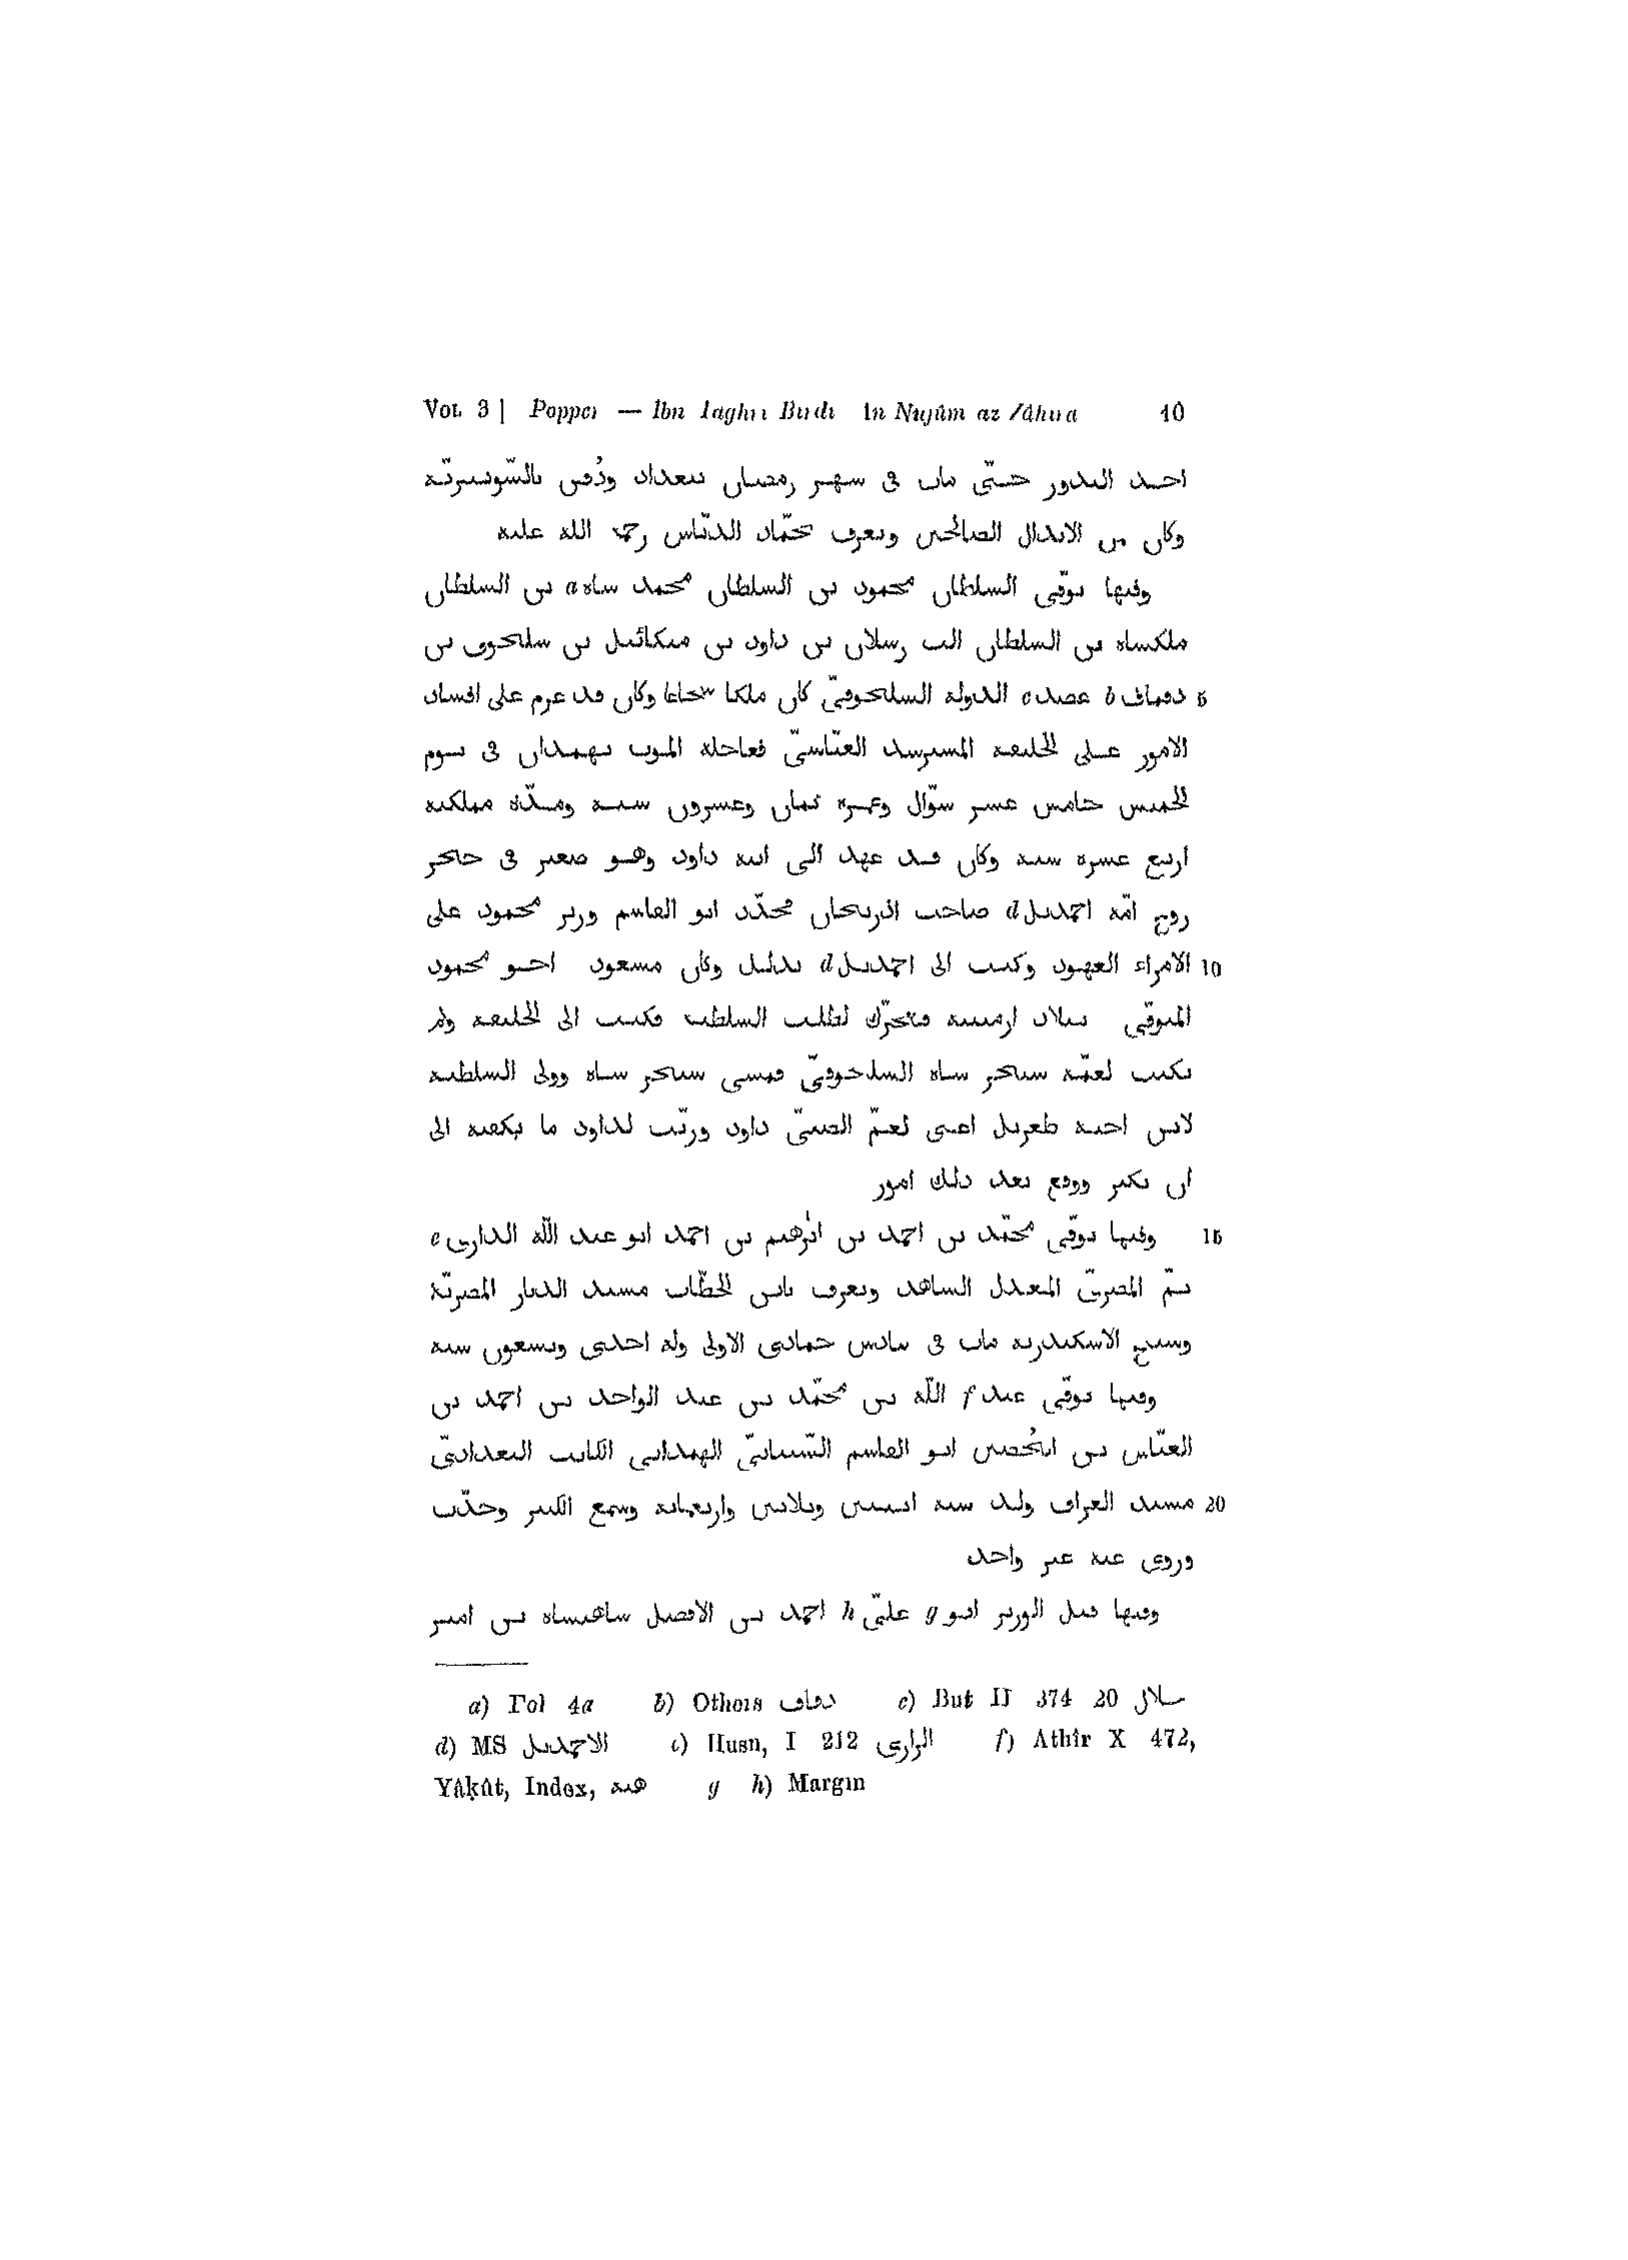 Vol. 3] Popper — Ibn Taghri Birdi An Nujûm az Zâhira 10
احد الندور حتّى مات فى شهر رمضان ببغداد ودُفن بالشّونيزيّة
وكان من الابدال الصالحين ويعرف بحمّاد الدبّاس رحمة الله عليه
وفيها توفّى السلطان محمود بن السلطان محمد شاه a بن السلطان
ملكشاه بن السلطان الب رسلان بن داود بن ميكائيل بن سلجوق بن
5 دقماق b عضد c الدولة السلجوقىّ كان ملكا شجاعا وكان قد عزم على افساد
الامور على الخليفة المسترشد العبّاسىّ فعاجله الموت بهمدان فى يوم
الخميس خامس عشر شوّال وعمره ثمان وعشرون سنة ومدّة مملكته
اربع عشرة سنة وكان قد عهد الى ابنه داود وهو صغير فى حجر
زوج امّه احمديل d صاحب اذربيجان فجدّد ابو القاسم وزير محمود على
10 الامراء العهود وكتب الى احمديل d بذلك وكان مسعود اخو محمود
المتوفّى ببلاد ارمينية فتحرّك لطلب السلطنة فكتب الى الخليفة ولم
يكتب لعمّه سنجر شاه السلجوقىّ فمشى سنجر شاه وولى السلطنة
لابن اخيه طغربل اعنى لعمّ الصبىّ داود ورتّب لداود ما يكفيه الى
ان يكبر ووقع بعد ذلك امور
15 وفيها توفّى محمّد بن احمد بن ابرهيم بن احمد ابو عبد اللّه الدارى e
ثمّ المصرىّ المعدل الشاهد ويعرف بابن الخطّاب مسند الديار المصريّة
وشيخ الاسكندرية مات فى سادس جمادى الاولى وله احدى وتسعون سنة
وفيها توفّى عبد f اللّه بن محمّد بن عبد الواحد بن احمد بن
العبّاس بن الحُصين ابو القاسم الشّيبانىّ الهمدانى الكاتب البغدادىّ
20 مسند العراق ولد سنة اثنين وثلاثين واربعمائة وسمع الكثير وحدّث
وروى عنه غير واحد
وفيها قتل الوزير ابو g علىّ h احمد بن الافضل شاهنشاه بن امير
a) Fol 4a b) Others دقاق c) But II 374 20 جلال
d) MS الاحمديل e) Husn, I 212 الرازى f) Athîr X 472,
Yâḳût, Index, هبة g h) Margin